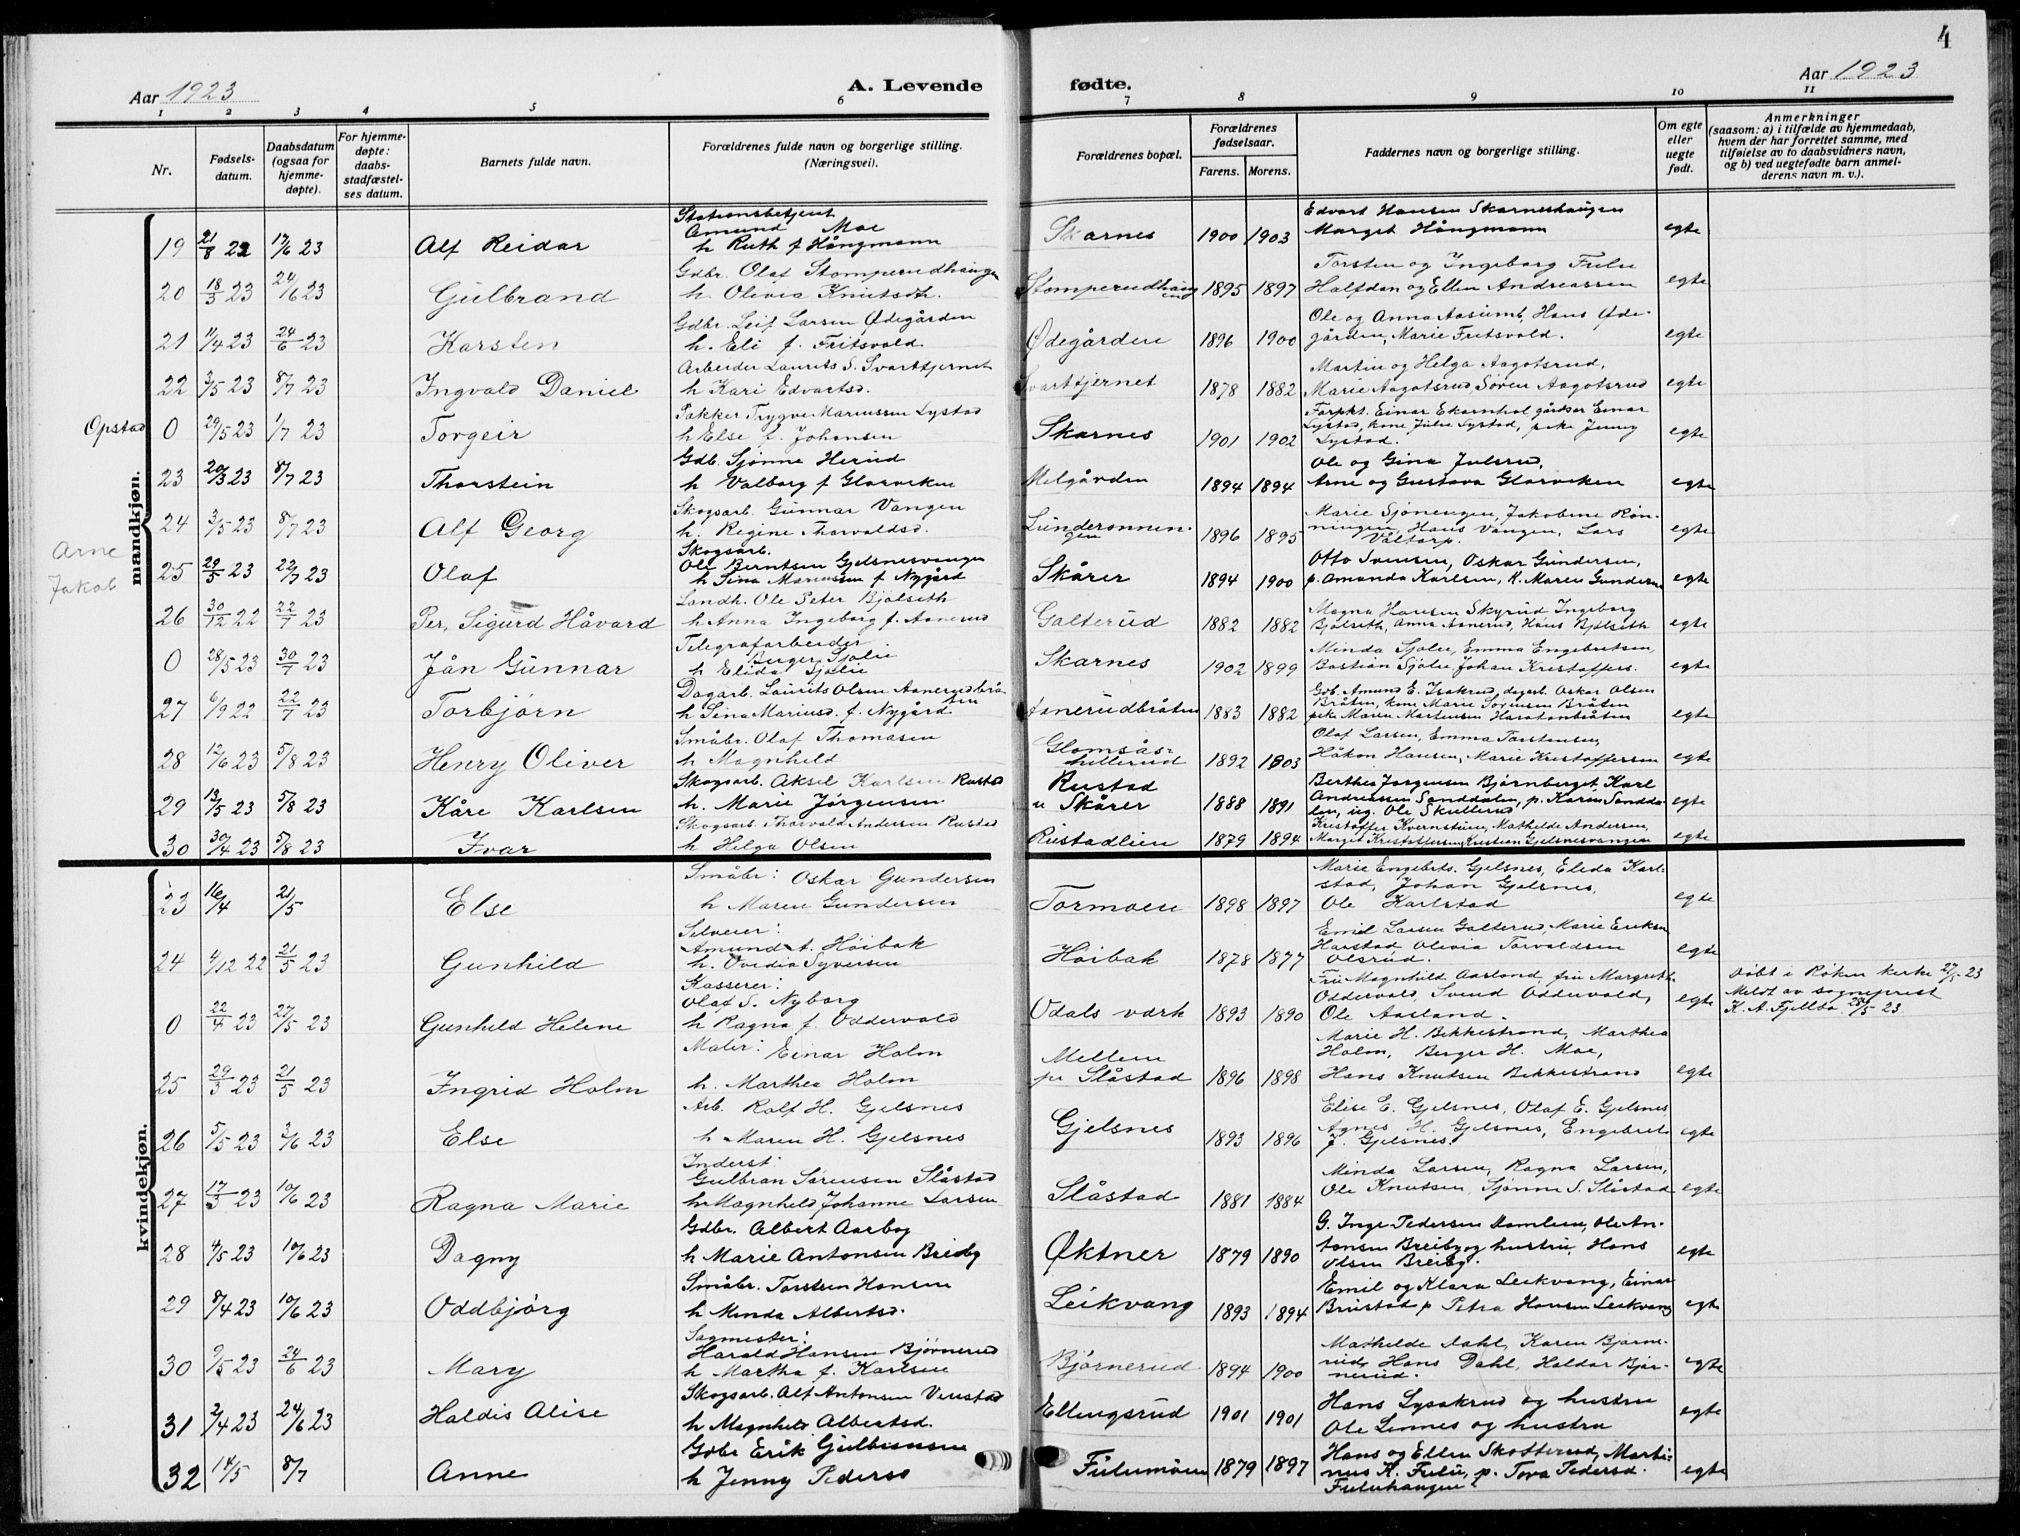 4
Aar 1923
A. Levende
fødte.
Aar 1923
1 2 3 4 5 6 7 8 9 10 11
Nr.
Fødsels-
datum.
Daabsdatum
(ogsaa for
hjemme-
døpte).
For hjemme-
døpte:
daabs-
stadfæstel-
ses datum.
Barnets fulde navn.
Forældrenes fulde navn og borgerlige stilling.
(Næringsvei).
Forældrenes bopæl.
Forældrenes
fødselsaar.
Farens. Morens.
Faddernes navn og borgerlige stilling.
Om egte
eller
uegte
født.
Anmerkninger
(saasom: a) i tilfælde av hjemmedaab,
hvem der har forrettet samme, med
tilføielse av to daabsvidners navn,
og b) ved uegtefødte barn anmel-
derens navn m. v.).
mandkjøn.
Stationsbetjent
Amund Moe
19 21/8 22 17/6 23 Alf Reidar h Ruth f Hångmann Skarnes 1900 1903
Edvart Hansen Skarneshaugen
Margit Hångmann egte
Gdbr. Olaf Stomperudhaugen
20 18/3 23 24/6 23 Gulbrand h. Olivia Knutsdtr. Stomperudhaugen 1895 1897
Torsten og Ingeborg Fulu
Halfdan og Ellen Andreassen egte
Gdbr. Leif Larsen Ødegården
21 11/4 23 24/6 23 Karsten h. Eli f. Fritsvold Ødegården 1896 1900
Ole og Anna Aasumb, Hans Øde-
gården, Marie Fritsvold. egte
Arbeider Laurits S. Svarttjernet
22 3/5 23 8/7 23 Ingvald Daniel h Kari Edvartsd. Svarttjernet 1878 1882
Martin og Helga Aagotsrud,
Marie Aagotsrud, Søren Aagotsrud egte
Pakker Trygve Mariussen Lystad
Opstad 0 29/5 23 1/7 23 Torgeir h Else f. Johansen Skarnes 1901 1902
Einar Ekornhol gårdsar Einar
Lystad, kone Julie Lystad, pike Jenny
Lystad. egte
Gdb. Sjønne Herud
23 20/3 23 8/7 23 Thorstein h Valborg f Glorviken Melgården 1894 1894
Ole og Gina Julsrud,
Arne og Gustava Glorviken egte
Skogsarb. Gunnar Vangen
24 3/5 23 8/7 23 Alf Georg h. Regine Thorvaldsd. 1896 1895
Marie Sjønengen, Jakobine Røn-
ningen, Hans Vangen, Lars
Våltorp. egte
Arne
Jakob
Skogsarb.
Ole Berntsen Gjelsnesvangen
25 29/5 23 22/7 23 Olaf h Lina Mariussen f Nygård Skårer 1894 1900
Otto Svensen, Oskar Gundersen,
p. Amanda Karlsen, K. Maren Gundersen egte
Landh. Ole Peter Bjølseth
26 30/12 22 22/7 23 Per, Sigurd Håvard h Anna Ingeborg f. Aanerud Galterud 1882 1882
Magna Hansen Skyrud Ingeborg
Bjølseth, Anna Aanerud, Hans Bjølseth egte
Telegrafarbeider
Berger Sjølie
0 28/5 23 30/7 23 Jån Gunnar h Elida Sjølie Skarnes 1902 1899
Minda Sjølie, Emma Engebretsen
Bastian Sjølie, Johan Kristoffers. egte
Dagarb. Laurits Olsen Aanerudbråten
27 6/9 22 22/7 23 Torbjørn h Lina Mariusd. f. Nygård Aanerudbråten 1883 1882
Gdb. Amund E. Isakrud, dagarb. Oskar Olsen
Bråten, kone Marie Sørensen Bråten
pike Maren Martensen Haratonbråten egte
Småbr. Olaf Thomasen
28 12/6 23 5/8 23 Henry Oliver h Magnhild Glomsås-
hullerud 1892 1903
Olaf Larsen, Emma Torstensen,
Håkon Hansen, Marie Kristoffersen egte
Skogsarb. Aksel Karlsen Rustad
29 13/5 23 5/8 23 Kåre Karlsen h. Marie Jørgensen Rustad
u Skårer 1888 1891
Berthea Jørgensen Bjørnberget. Karl
Andreassen Sanddalen, p. Karen Sandda-
len, ug. Ole Skullerud egte
Skogsarb. Thorvald Andersen Rustad
30 30/4 23 5/8 23 Ivar h Helga Olsen Rustadlien 1879 1894
Kristoffer Kvernstuen, Mathilde Andersen,
Margit Kristoffersen, Kristian Gjelsnesvangen egte
kvindekjøn.
Småbr: Oskar Gundersen
23 16/4 21/5 Else h Maren Gundersen Tormoen 1898 1897
Marie Engebrets. Gjelsnes, Elida Karl-
stad, Johan Gjelsnes,
Ole Karlstad egte
Selveier:
Amund A. Høibak
24 4/12 22 21/5 23 Gunhild h. Ovedia Syversen Høibak 1878 1877
Emil Larsen Galterud, Marie Eriksen
Harstad Olivia Torvaldsen
Olsrud. egte
Kasserer:
Olaf S. Nyborg
0 22/4 23 27/5 23 Gunhild Helene h Ragna f. Oddervold Odals værk 1893 1890
Fru Magnhild Aasland, fru Margreth
Oddervold, Svend Oddervold,
Ole Aasland. egte
Døbt i Røken kirke 27/5 23
Meldt av sogneprest
K. A. Fjellbo 28/5 23.
Maler: Einar Holm
25 29/3 23 21/5 23 Ingrid Holm h. Marthea Holm Mellem
pr Slåstad 1896 1898
Marie H. Bekkestrand, Marthea
Holm, Berger H. Moe,
Hans Knutsen Bekkestrand egte
Arb. Ralf H. Gjelsnes
26 5/5 23 3/6 23 Else h Maren H. Gjelsnes Gjelsnes 1893 1896
Elise E. Gjelsnes, Olaf E. Gjelsnes
Agnes H. Gjelsnes, Engebret
J. Gjelsnes. egte
Inderst:
Gulbran Sørensen Slåstad
27 17/3 23 10/6 23 Ragna Marie h Magnhild Johanne Larsen Slåstad 1881 1884
Minda Larsen, Ragna Larsen,
Ole Knutsen, Sjønne S. Slåstad egte
Gdbr. Albert Aarbog
28 4/5 23 10/6 23 Dagny h Marie Antonsen Breiby Øktner 1879 1890
G. Inge Pedersen Domlien, Ole An-
tonsen Breiby og hustru, Hans
Olsen Breiby. egte
Småbr. Torsten Hansen
29 8/4 23 10/6 23 Oddbjørg h Minda Albertsd. Leikvang 1893 1894
Emil og Klara Leikvang, Einar
Brustad p Petra Hansen Leikvang egte
Sagmester:
Harald Hansen Bjørnerud
30 9/5 23 24/6 23 Mary h Martha f. Karlsen Bjørnerud 1894 1900
Mathilde Dahl, Karen Bjørne-
rud, Hans Dahl, Haldor Bjør-
nerud. egte
Skogsarb. Alf Antonsen Venstad
31 2/4 23 24/6 23 Haldis Alise h Magnhild Albertsd. Ellingsrud 1901 1901
Hans Lysakrud og hustru
Ole Linnes og hustru egte
Gdbr Erik Gulbransen
32 14/5 8/7 Anne h Jenny Pedersd Fulumoen 1879 1897
Hans og Ellen Skotterud, Marti-
nus K. Fulu, p. Tora Pedersd.
Fuluhaugen egte